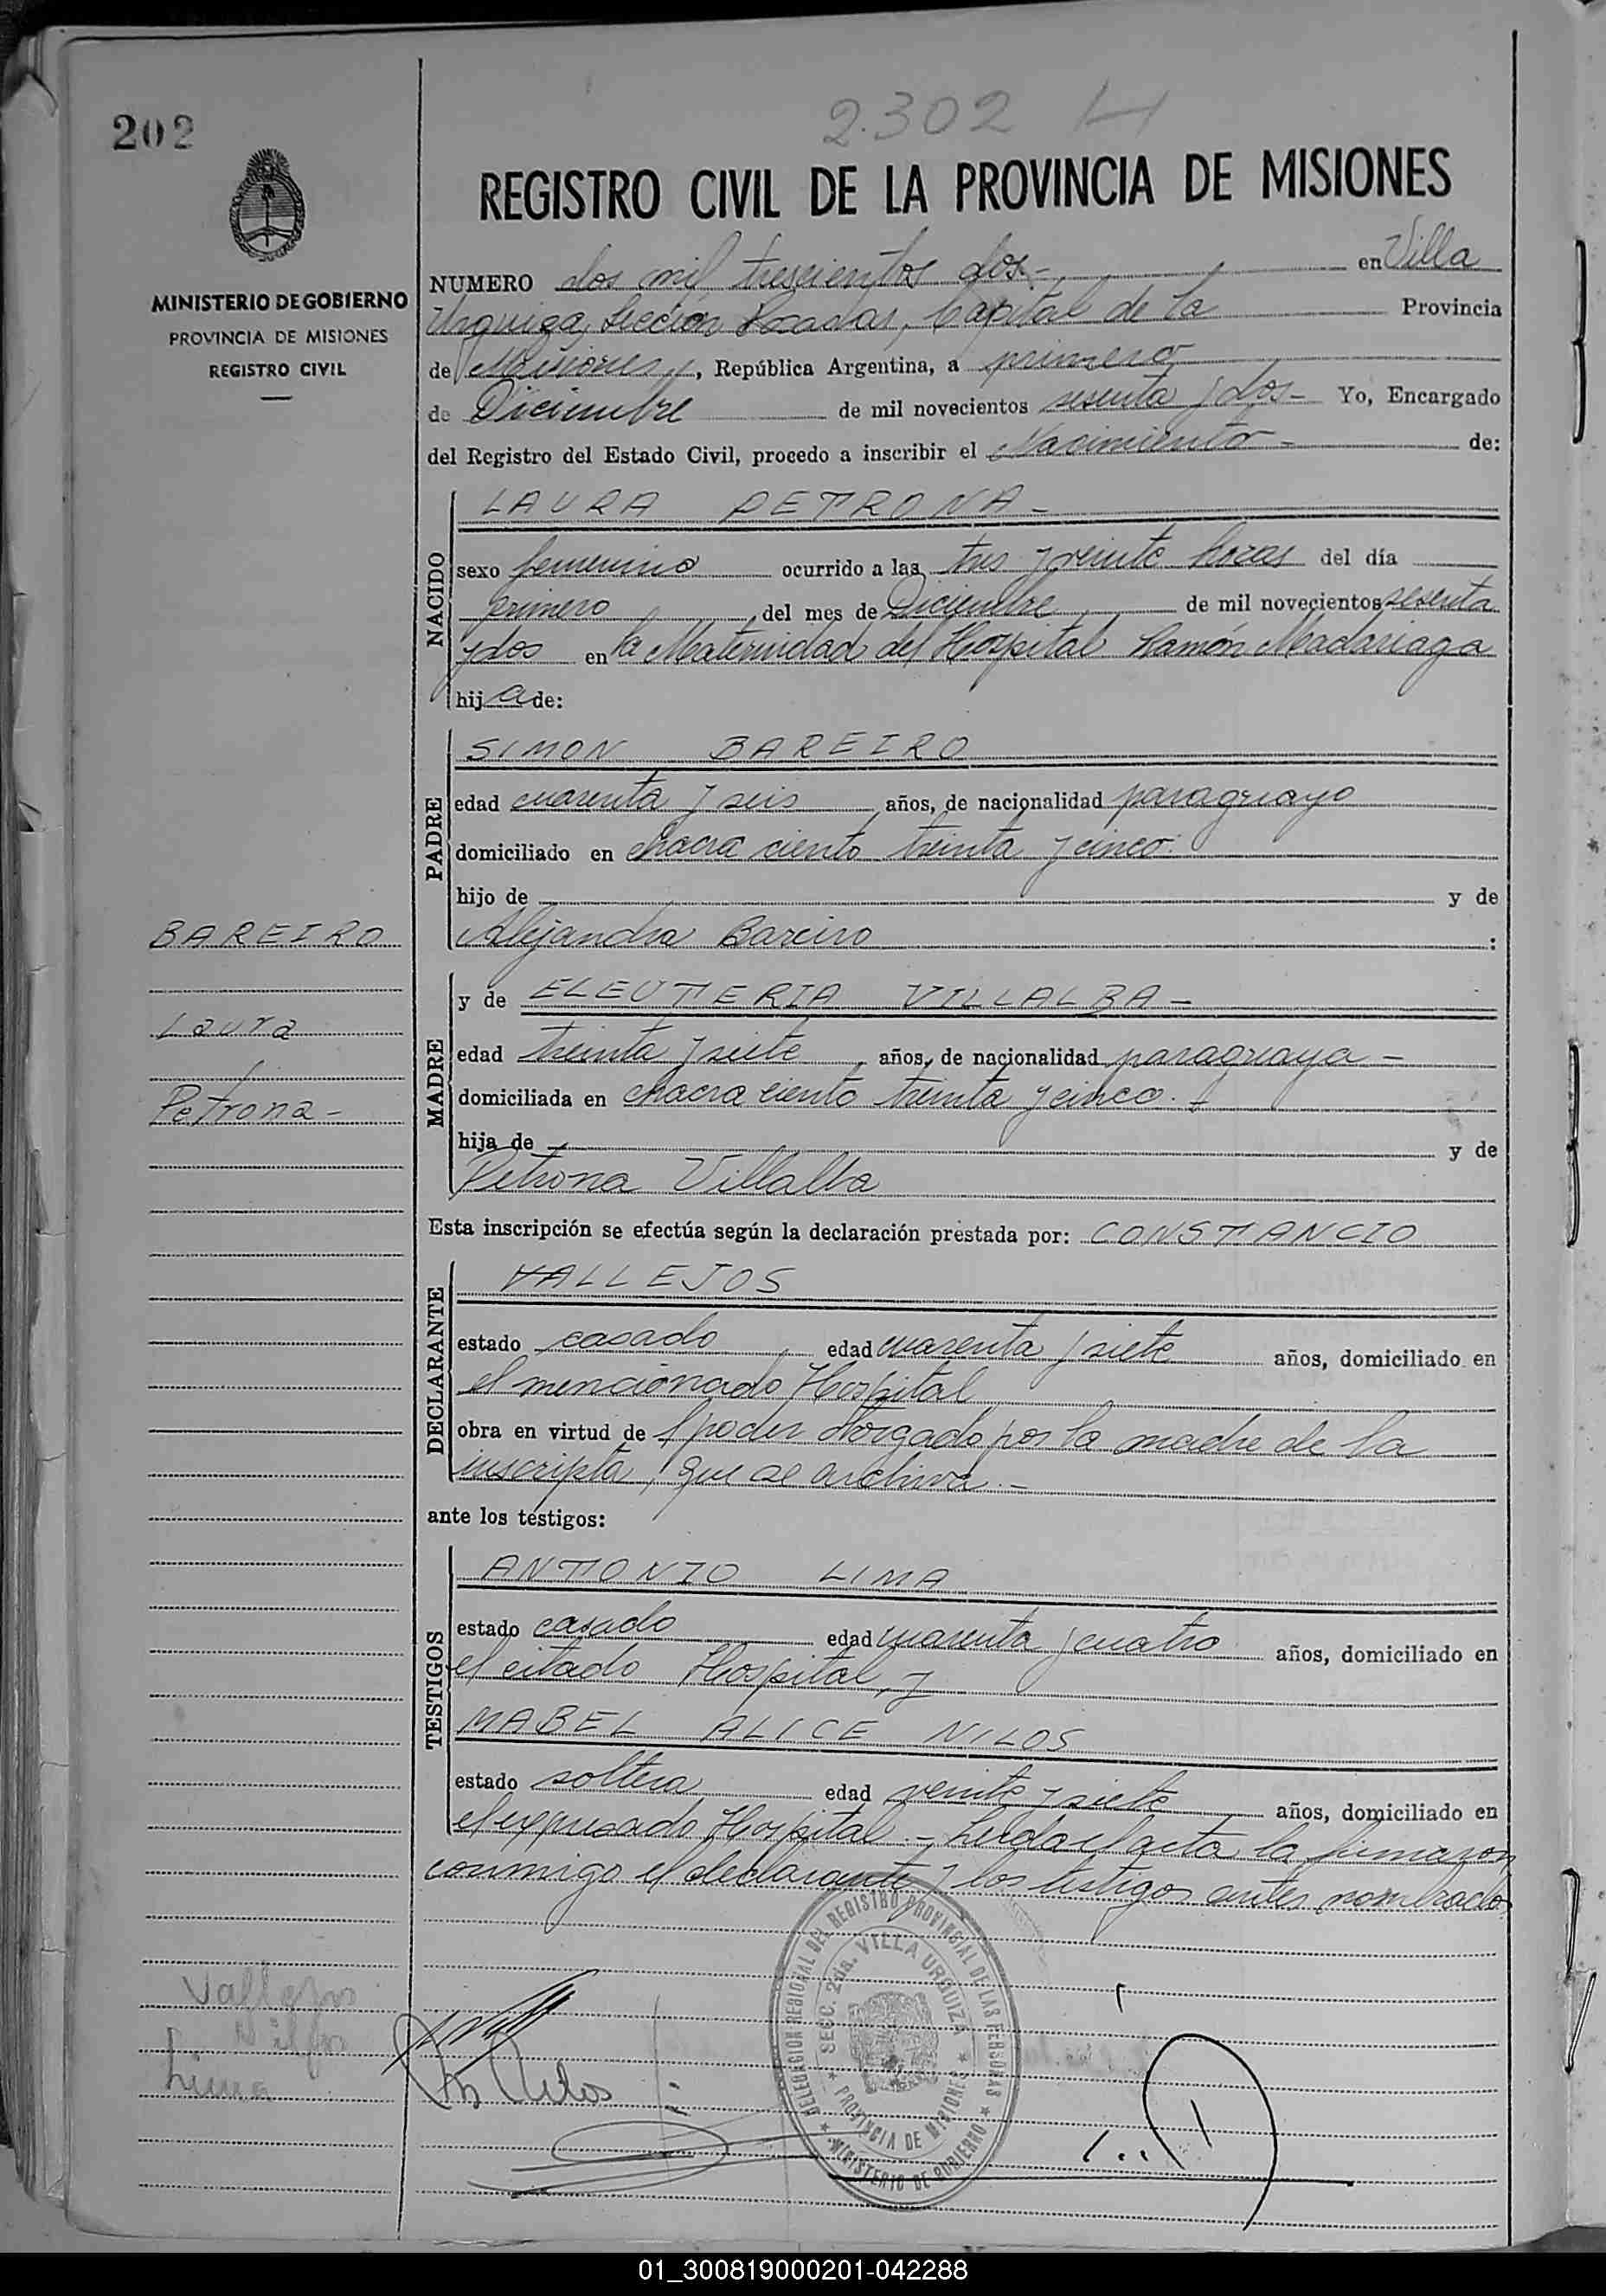 202
2.302 H
REGISTRO CIVIL DE LA PROVINCIA DE MISIONES
MINISTERIO DE GOBIERNO
PROVINCIA DE MISIONES
REGISTRO CIVIL
NUMERO dos mil trescientos dos- en Villa
Urquiza, Sección Posadas, Capital de la Provincia
de Misiones, República Argentina, a primero
de Diciembre de mil novecientos sesenta y dos- Yo, Encargado
del Registro del Estado Civil, procedo a inscribir el Nacimiento- de:
NACIDO
LAURA PETRONA-
sexo femenino ocurrido a las tres y veinte horas del día
primero del mes de Diciembre de mil novecientos sesenta
y dos en la Maternidad del Hospital Ramón Madariaga
hija de:
PADRE
SIMON BAREIRO
edad cuarenta y seis años, de nacionalidad paraguayo
domiciliado en chacra ciento treinta y cinco.
hijo de y de
Alejandra Bareiro :
BAREIRO
Laura
Petrona-
MADRE
y de ELEUTERIA VILLALBA-
edad treinta y siete años, de nacionalidad paraguaya-
domiciliada en chacra ciento treinta y cinco.-
hija de y de
Petrona Villalba
Esta inscripción se efectúa según la declaración prestada por: CONSTANCIO
DECLARANTE
VALLEJOS
estado casado edad cuarenta y siete años, domiciliado en
el mencionado Hospital
obra en virtud de poder otorgado por la madre de la
inscripta, que se archiva.-
ante los testigos:
TESTIGOS
ANTONIO LIMA
estado casado edad cuarenta y cuatro años, domiciliado en
el citado Hospital, y
MABEL ALICE NILOS
estado soltera edad veinte y siete años, domiciliado en
el expresado Hospital.- Leida el acta la firmaron
conmigo el declarante y los testigos antes nombrados
Vallejos
Nilos
Lima
Nilos
DELEGACION REGIONAL DEL REGISTRO PROVINCIAL DE LAS PERSONAS
SECC. 2da. VILLA URQUIZA
PROVINCIA DE MISIONES
MINISTERIO DE GOBIERNO
01_300819000201-042288